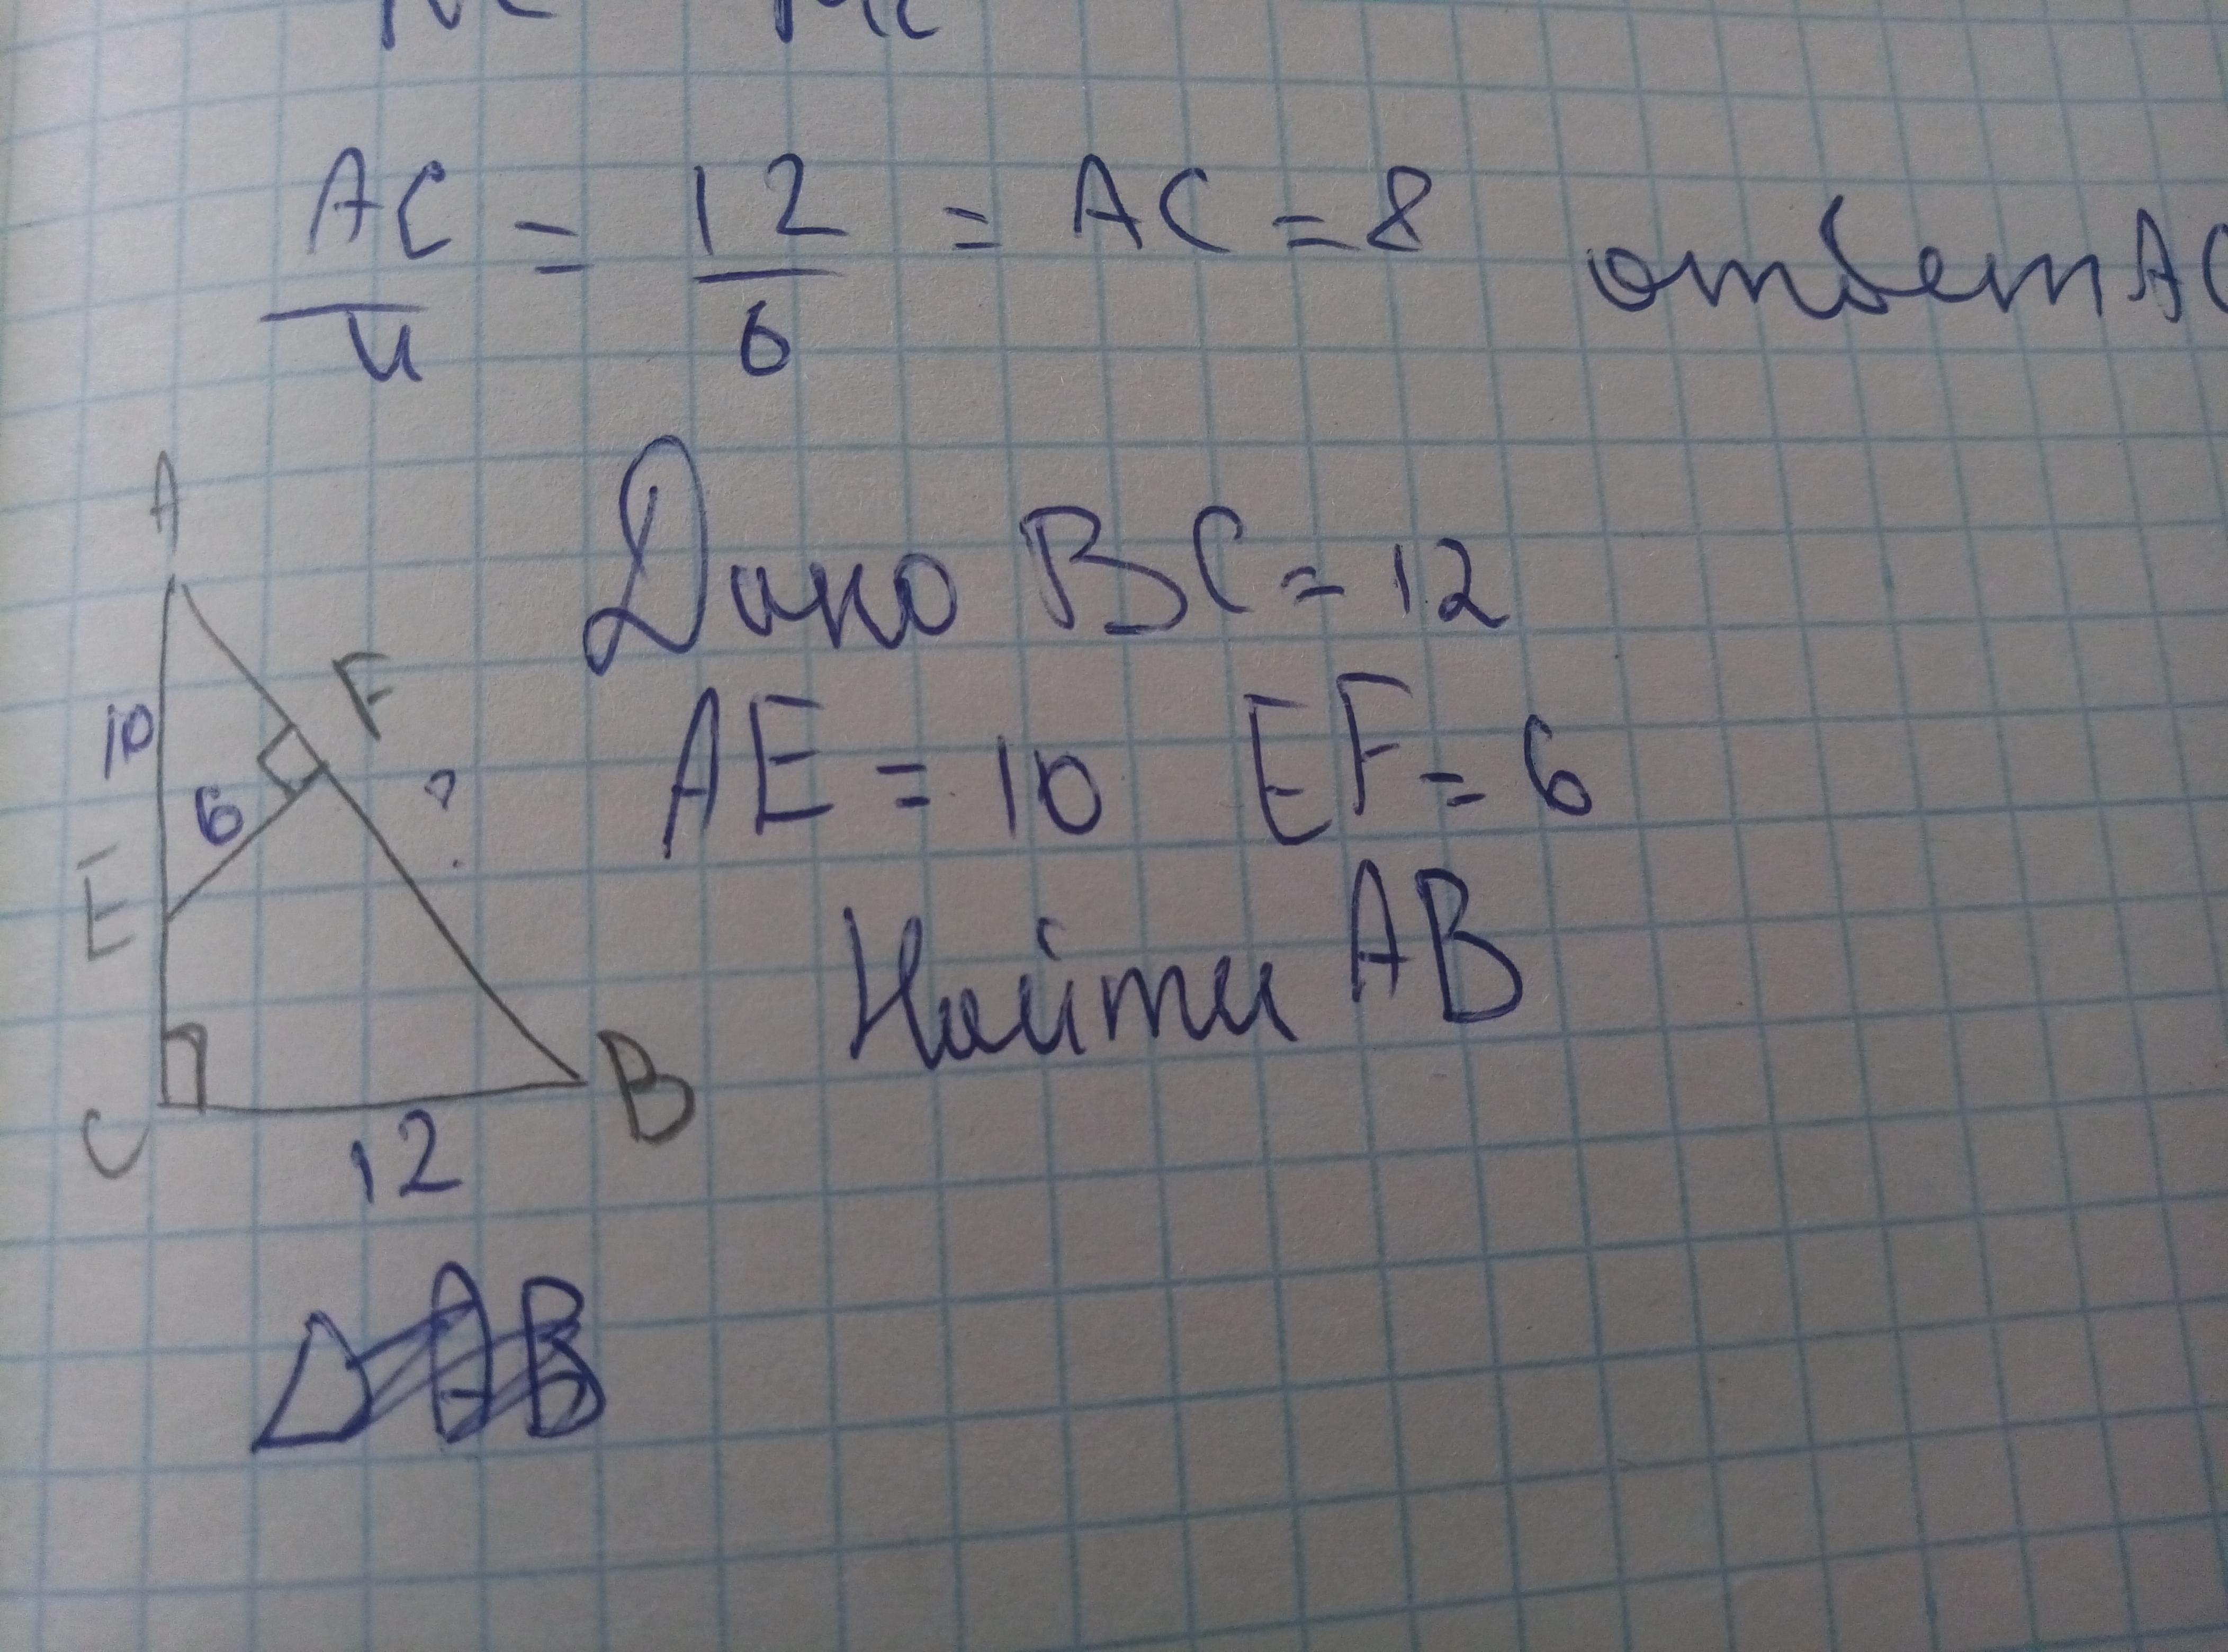 AC/4 = 12/6 = AC = 8 ответ AC
A
Дано BC = 12
F
10
AE = 10 EF = 6
6 ?
E
Найти AB
C B
12